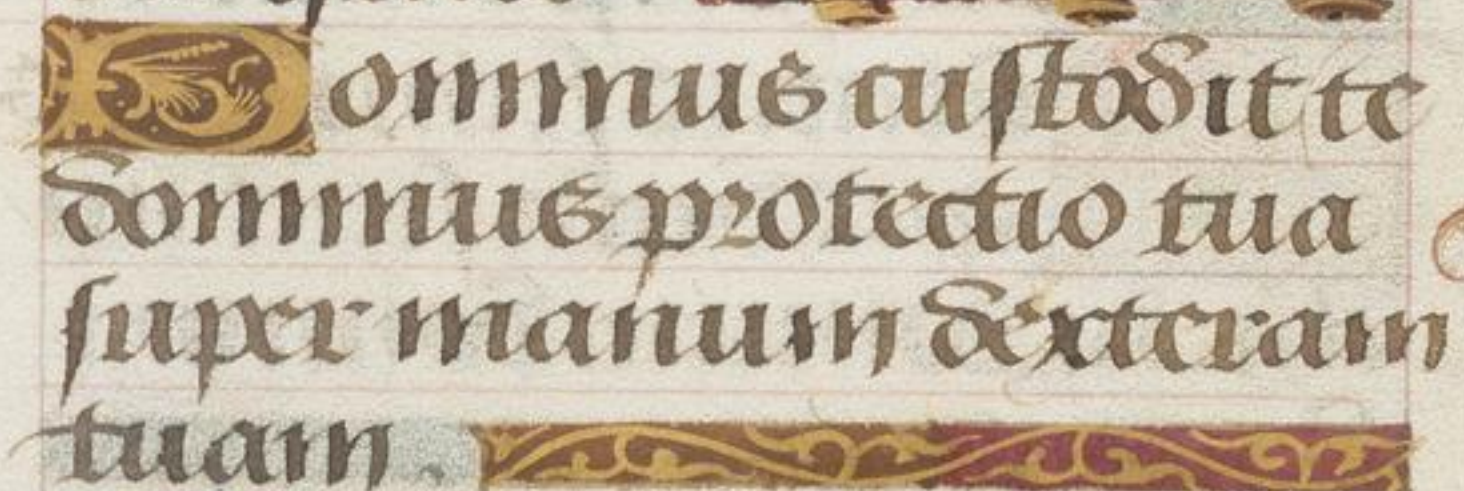 Dominus custodit te
dominus protectio tua
super manum dexteram
tuam.